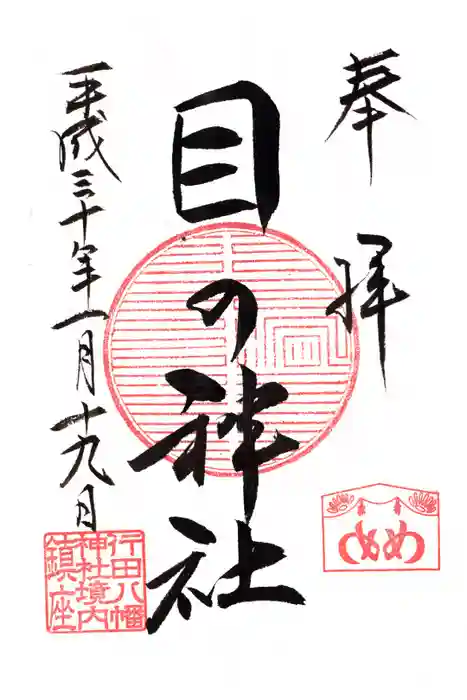 奉拝
目の神社
平成三十年一月十九日
行田八幡
神社境内
鎮座
め